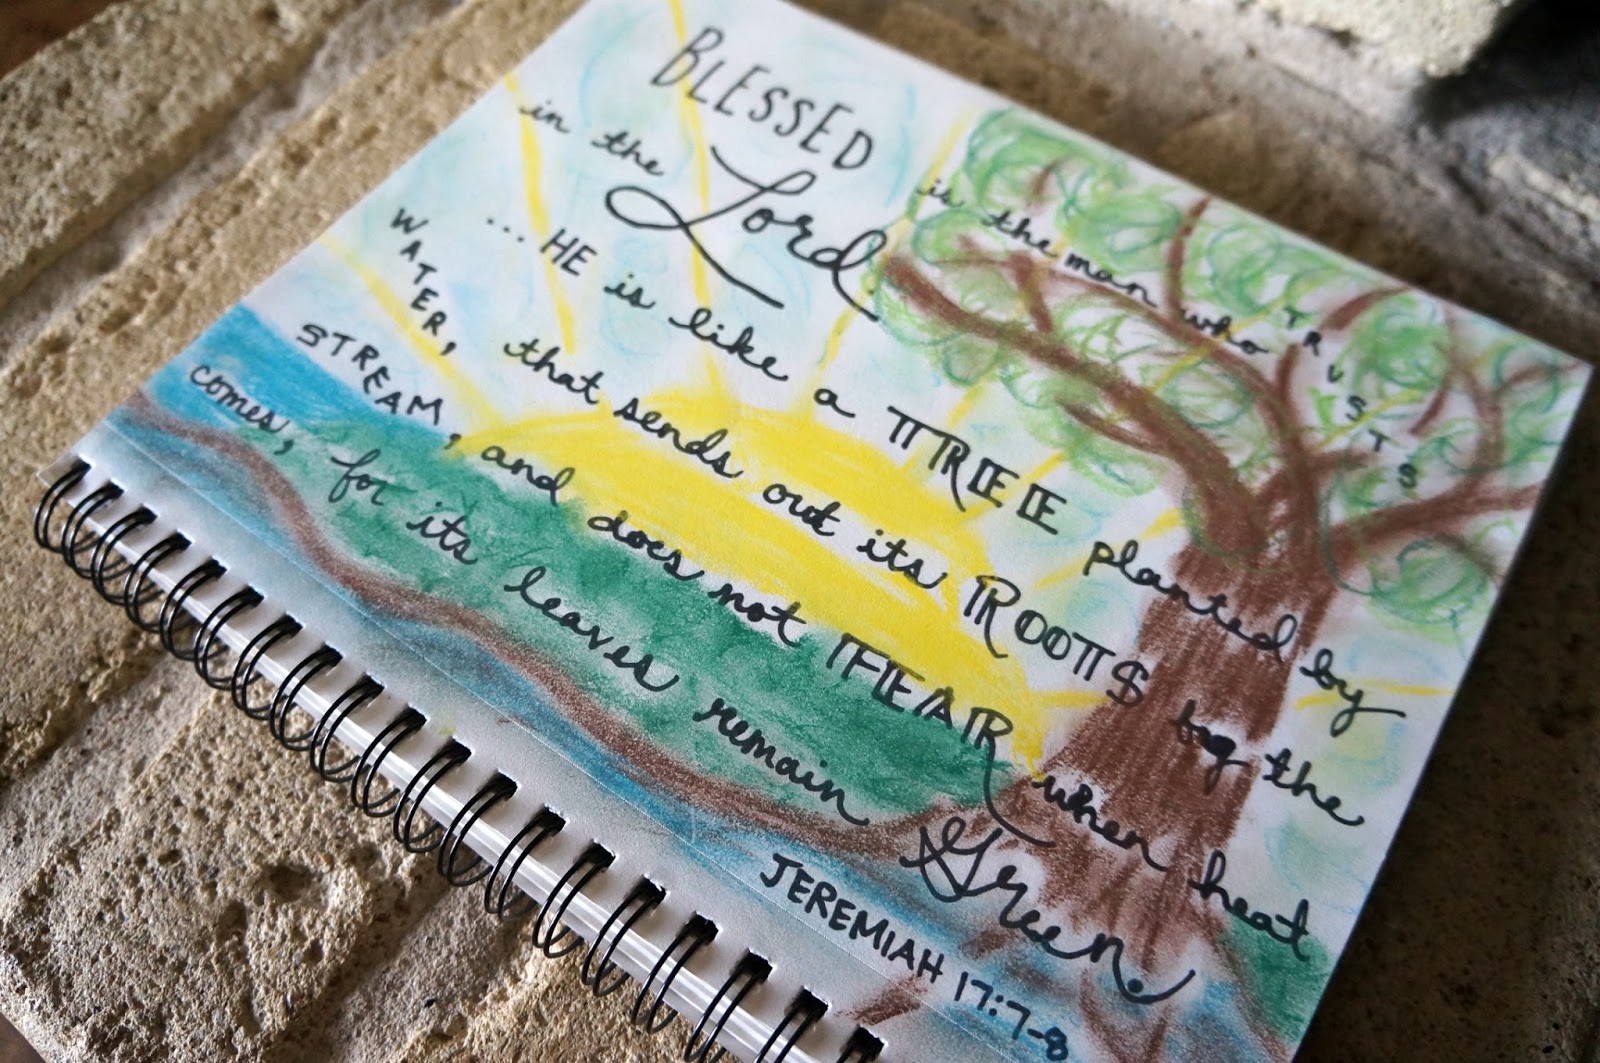 BLESSED is the man who TRUSTS
in the Lord.
...HE is like a TREE planted by
WATER, that sends out its ROOTS by the
STREAM, and does not FEAR when heat
comes, for its leaves remain Green.
JEREMIAH 17:7-8